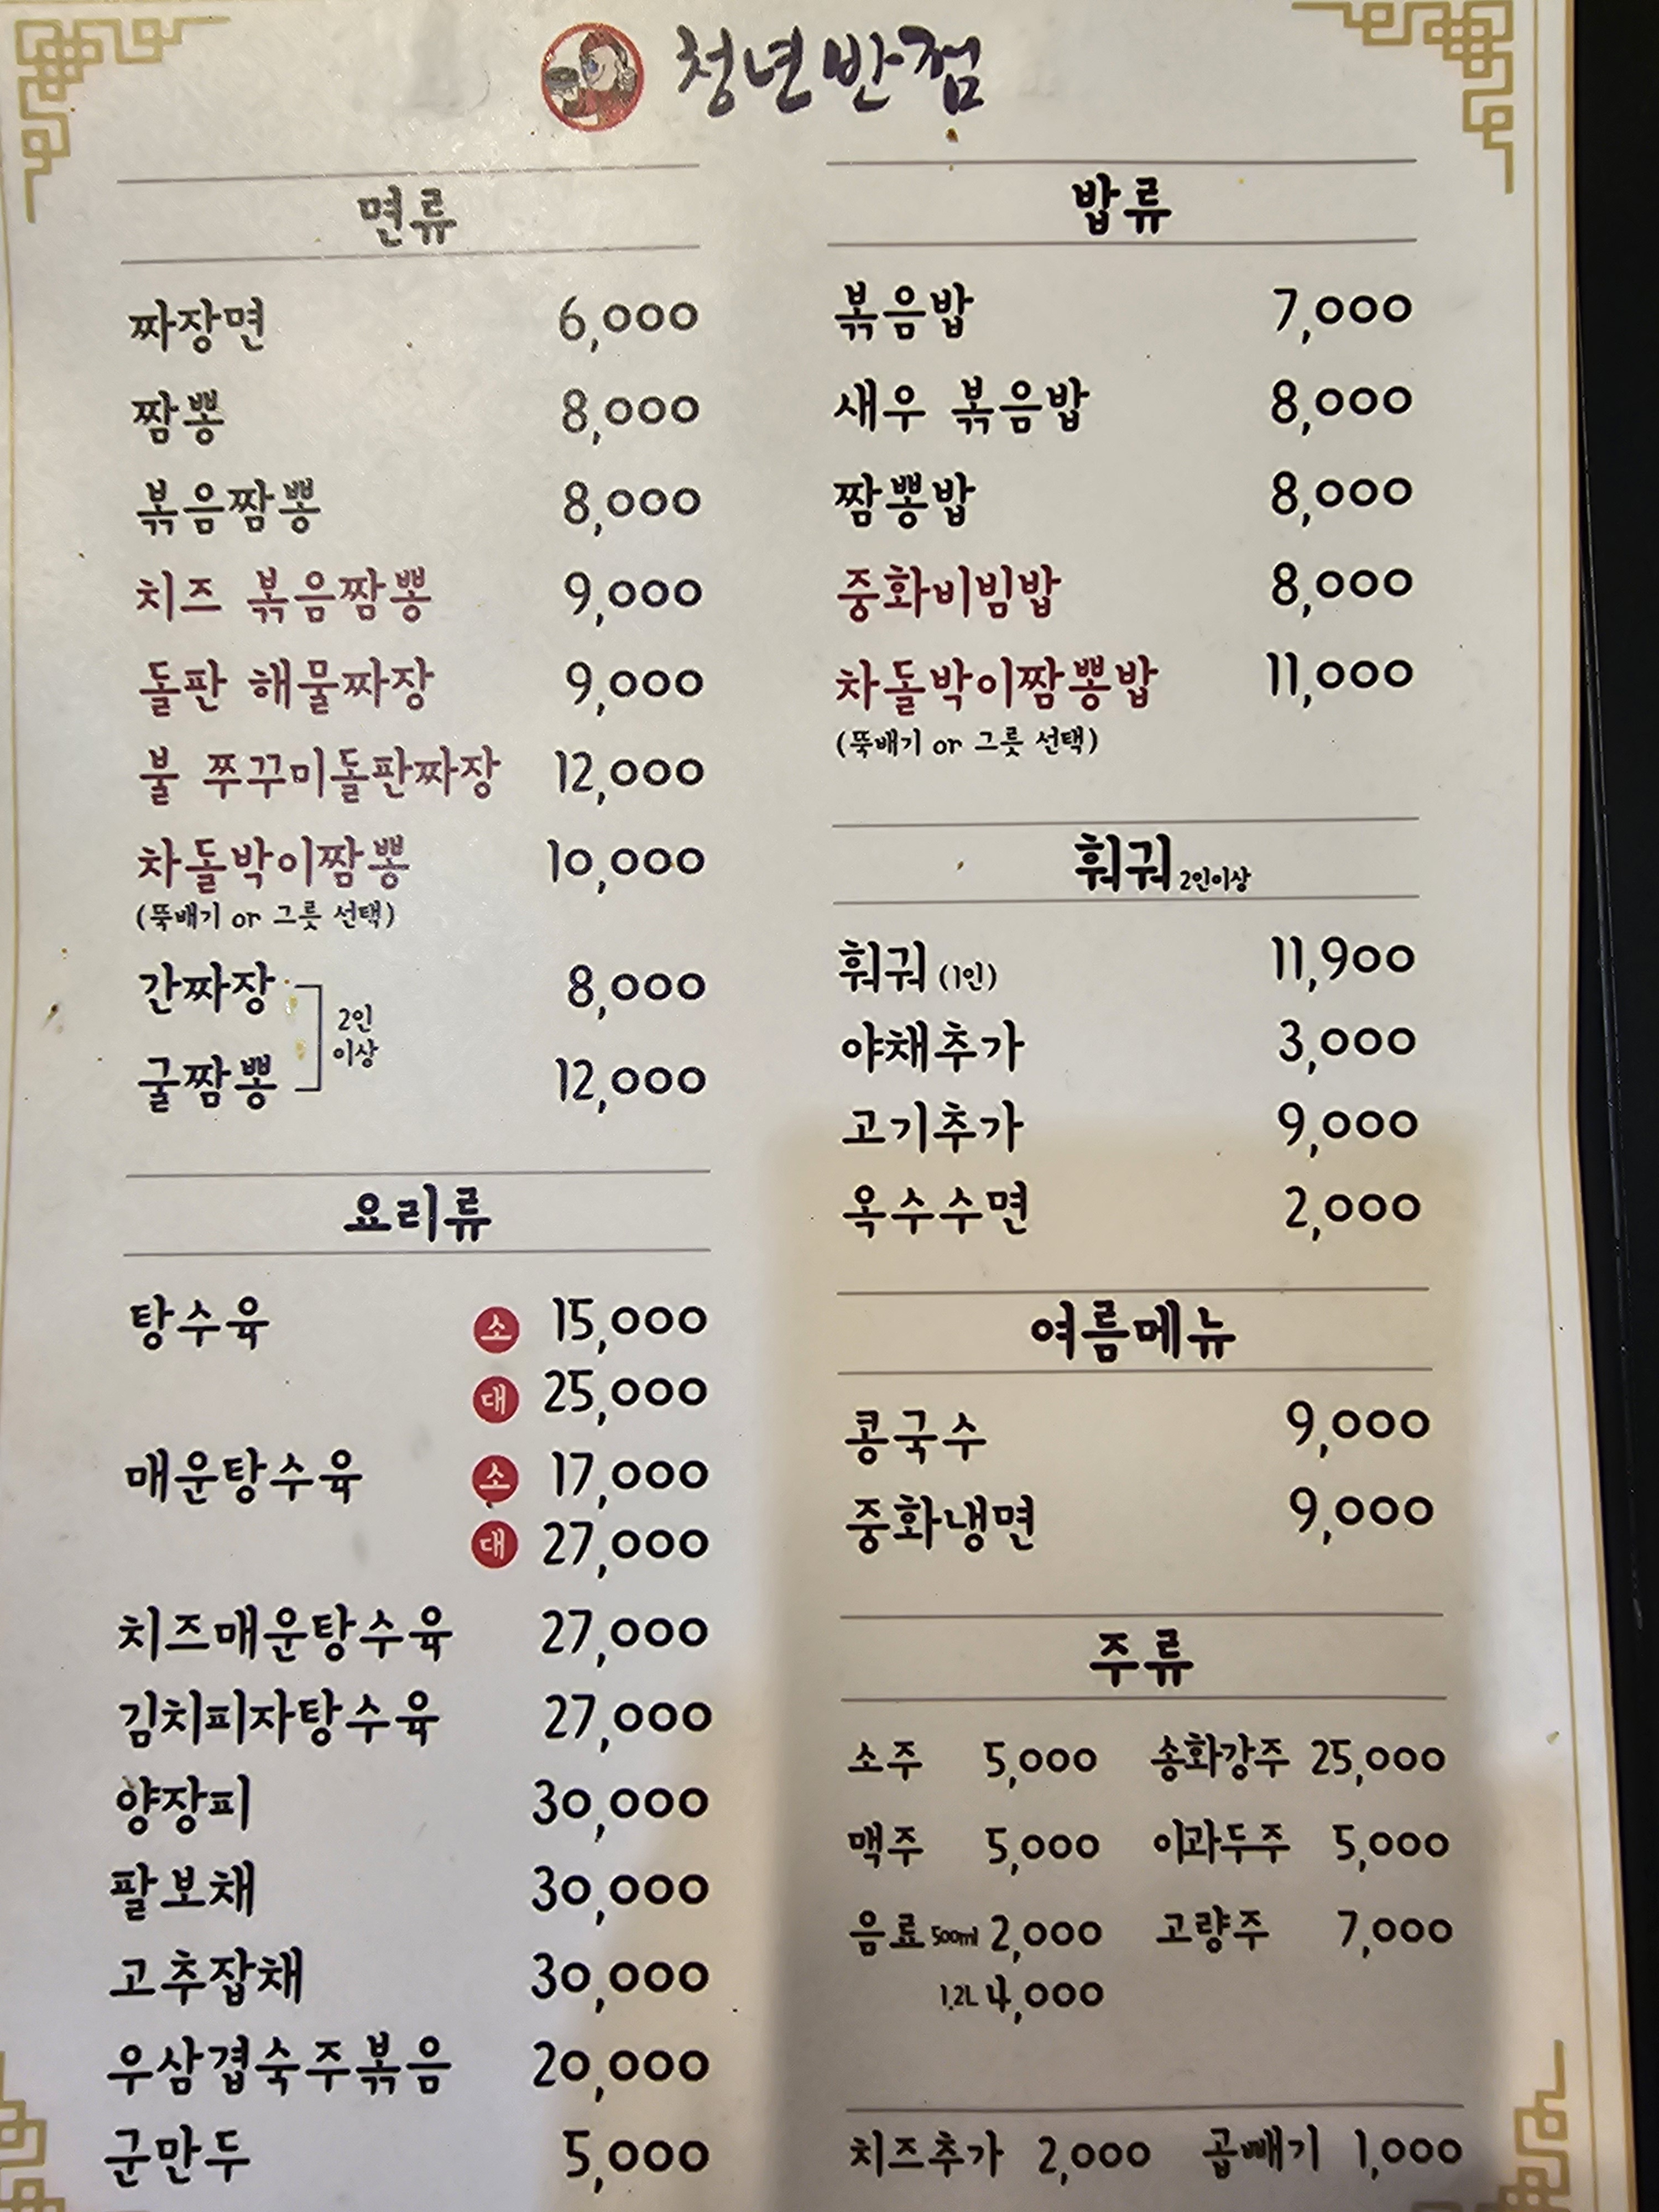 청년반점
면류
짜장면 6,000
짬뽕 8,000
볶음짬뽕 8,000
치즈 볶음짬뽕 9,000
돌판 해물짜장 9,000
불 쭈꾸미돌판짜장 12,000
차돌박이짬뽕 10,000
(뚝배기 or 그릇 선택)
간짜장 8,000
2인
이상
굴짬뽕 12,000
요리류
탕수육 소 15,000
대 25,000
매운탕수육 소 17,000
대 27,000
치즈매운탕수육 27,000
김치피자탕수육 27,000
양장피 30,000
팔보채 30,000
고추잡채 30,000
우삼겹숙주볶음 20,000
군만두 5,000
밥류
볶음밥 7,000
새우 볶음밥 8,000
짬뽕밥 8,000
중화비빔밥 8,000
차돌박이짬뽕밥 11,000
(뚝배기 or 그릇 선택)
훠궈 2인이상
훠궈 (1인) 11,900
야채추가 3,000
고기추가 9,000
옥수수면 2,000
여름메뉴
콩국수 9,000
중화냉면 9,000
주류
소주 5,000 송화강주 25,000
맥주 5,000 이과두주 5,000
음료 500ml 2,000 고량주 7,000
1.2L 4,000
치즈추가 2,000 곱빼기 1,000